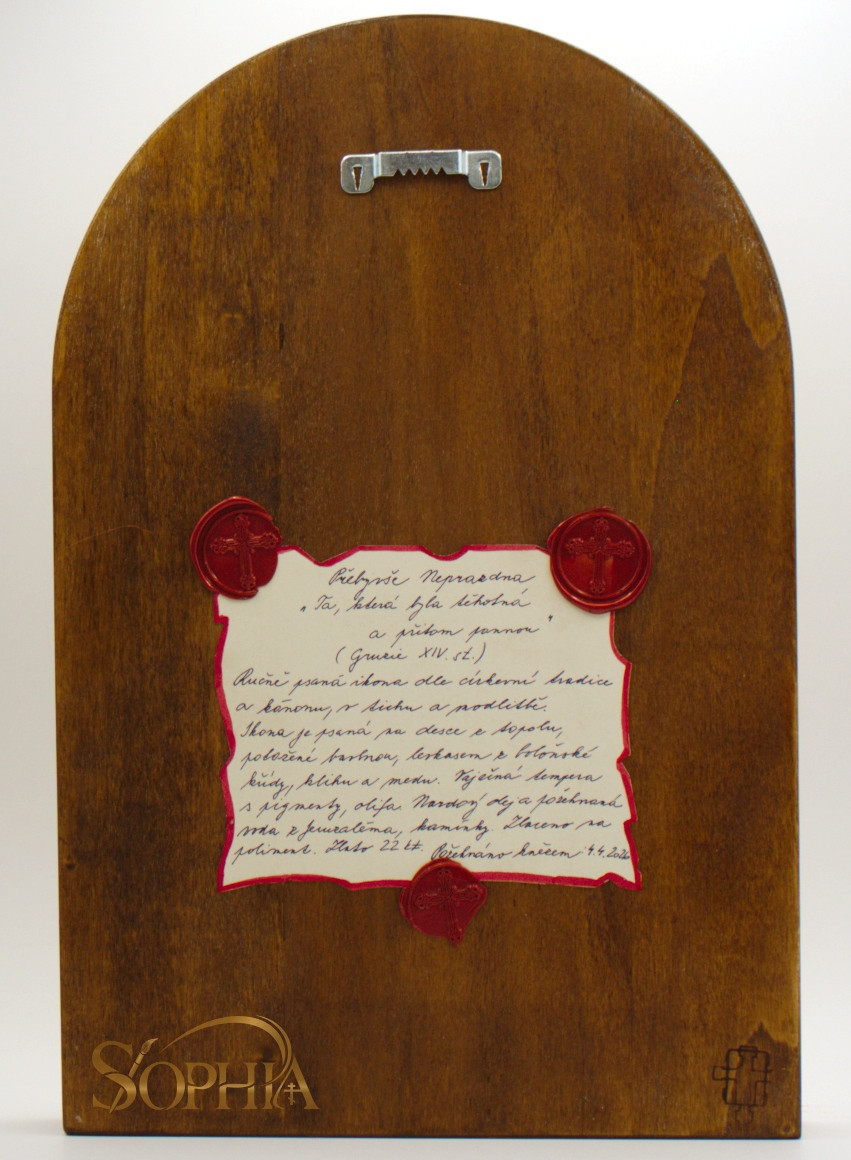 Přebyvše Neprazdna
„Ta, která byla těhotná
a přitom pannou"
(Gruzie XIV. st.)
Ručně psaná ikona dle církevní tradice
a kánonu, v tichu a modlitbě.
Ikona je psaná na desce z topolu,
potažené bavlnou, levkasem z boloňské
křídy, klihu a medu. Vaječná tempera
s pigmenty, olifa. Nardový olej a požehnaná
voda z Jeruzaléma, kamínky. Zlaceno na
poliment. Zlato 22 kt. Požehnáno knězem 4.4.2026
SOPHIA